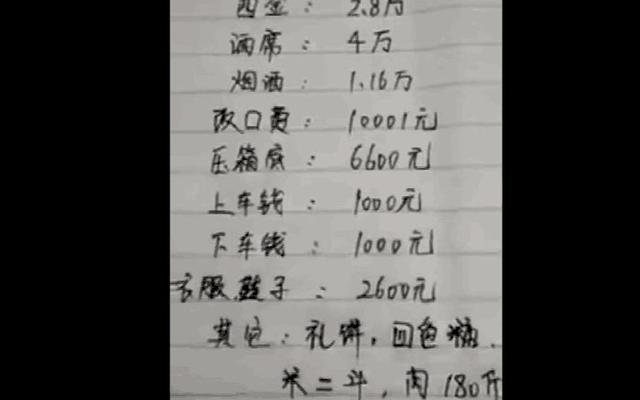 四金：2.8万
酒席：4万
烟酒：1.16万
改口费：10001元
压箱底：6600元
上车钱：1000元
下车钱：1000元
衣服鞋子：2600元
其它：礼饼，回色糖．
米二斗，肉180斤